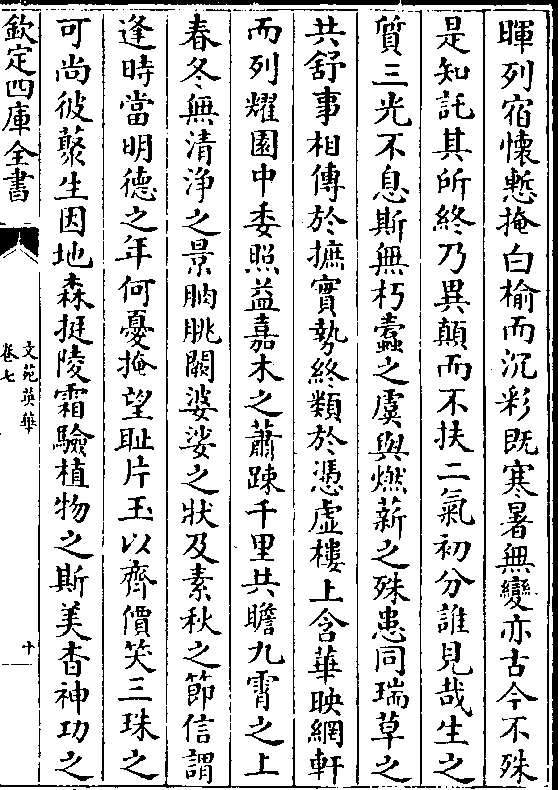 暉列宿懷慙掩白榆而沉彩既寒暑無變亦古今不殊
是知託其所終乃異顛而不扶二氣初分誰見哉生之
質三光不息斯無朽蠹之虞與燃薪之殊患同瑞草之
共舒事相傳於摭實勢終類於憑虛樓上含華映網軒
而列耀園中委照益嘉木之蕭踈千里共瞻九霄之上
春冬無清淨之景朒朓闕婆娑之狀及素秋之節信謂
逢時當明德之年何憂掩望耻片玉以齊價笑三珠之
可尚彼藂生因地森挺陵霜驗植物之斯美杳神功之
欽定四庫全書
文苑英華
卷七
十